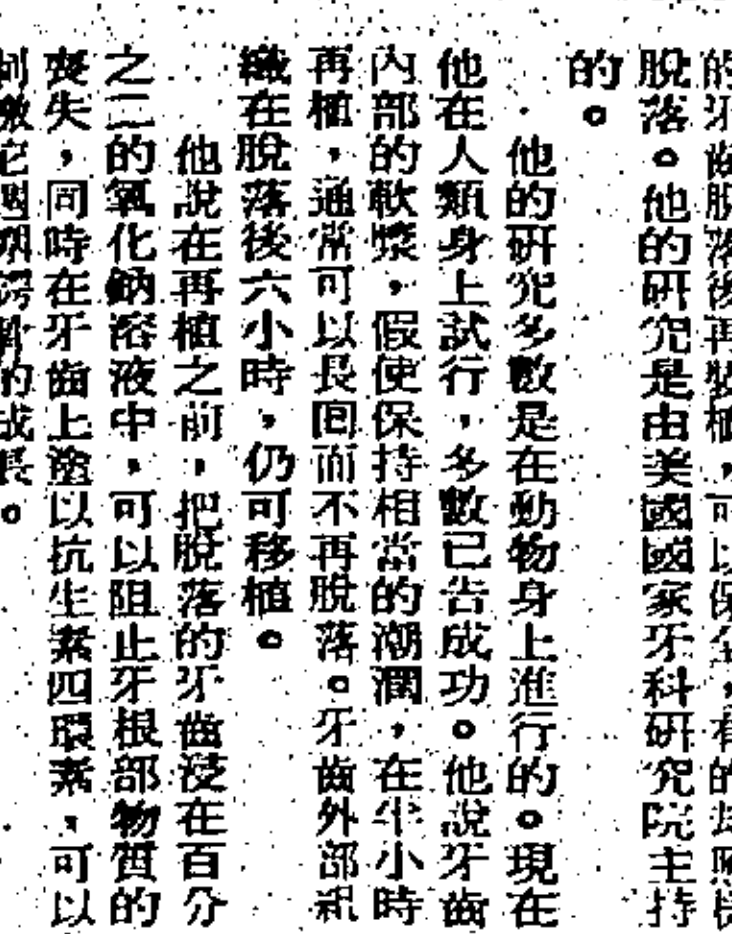 的牙齒脫落後再裝植，可以保全，有的
脫落。他的研究是由美國國家牙科研究院主持
的。
他的研究多數是在動物身上進行的。現在
他在人類身上試行，多數已告成功。他說牙齒
內部的軟漿，假使保持相當的潮潤，在半小時
再植，通常可以長回而不再脫落。牙齒外部組
織在脫落後六小時，仍可移植。
他說在再植之前，把脫落的牙齒浸在百分
之二的氟化鈉溶液中，可以阻止牙根部物質的
喪失，同時在牙齒上塗以抗生素四環素，可以
刺激它週圍的成長。